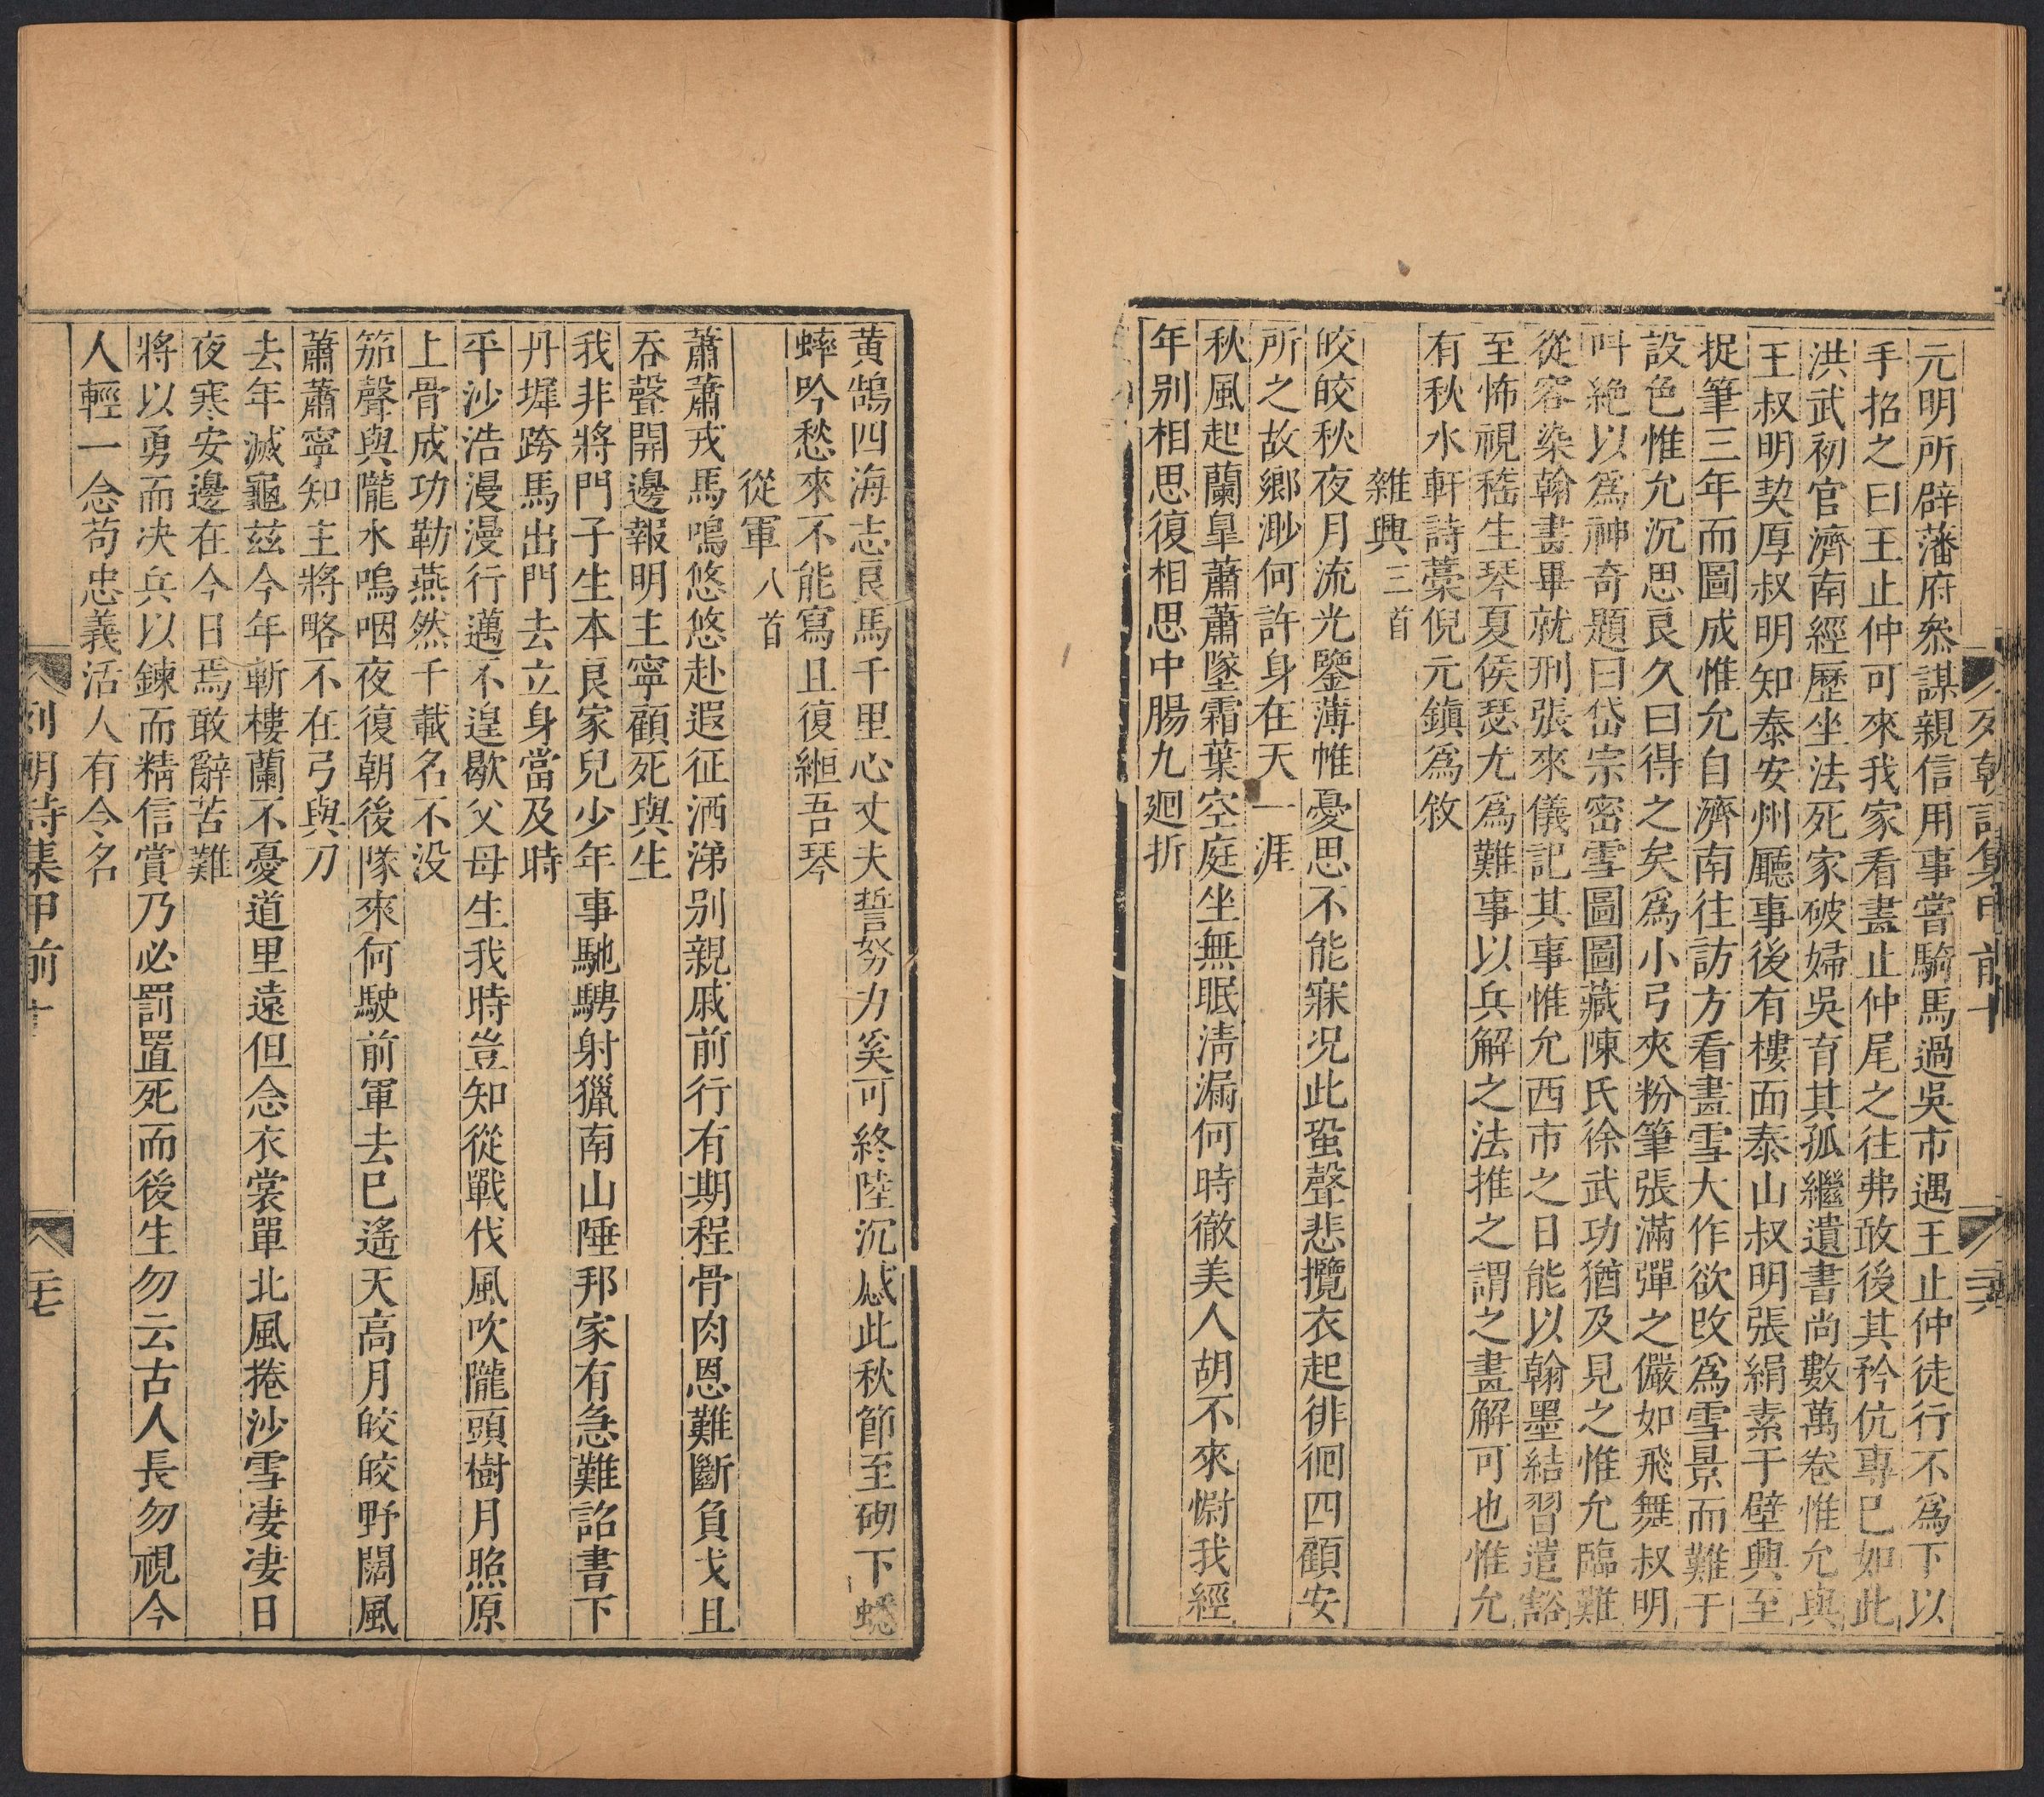 元明所辟藩府叅謀親信用事嘗騎馬過吳市遇王止仲徒行不爲下以
手招之曰王止仲可來我家看畫止仲尾之往弗敢後其矜伉專已如此
洪武初官濟南經歷坐法死家破婦吳育其孤繼遺書尚數萬卷惟允與
王叔明契厚叔明知泰安州廳事後有樓面泰山叔明張絹素于壁興至
捉筆三年而圖成惟允自濟南往訪方看畫雪大作欲改爲雪景而難于
設色惟允沉思良久曰得之矣爲小弓夾粉筆張滿彈之儼如飛舞叔明
叫絶以爲神奇題曰岱宗密雪圖圖藏陳氏徐武功猶及見之惟允臨難
從容染翰畫畢就刑張來儀記其事惟允西市之日能以翰墨結習遣豁
至怖視嵇生琴夏侯瑟尤爲難事以兵解之法推之謂之畫解可也惟允
有秋水軒詩藁倪元鎮爲敘
雜興三首
皎皎秋夜月流光鑒薄帷憂思不能寐況此蛩聲悲攬衣起徘徊四顧安
所之故鄉渺何許身在天一涯
秋風起蘭皐蕭蕭墜霜葉空庭坐無眠淸漏何時徹美人胡不來慰我經
年别相思復相思中腸九廻折
列朝詩集甲前十
二十六
黄鵠四海志良馬千里心丈夫誓努力奚可終陸沉感此秋節至砌下蟋
蟀吟愁來不能寫且復絙吾琴
從軍八首
蕭蕭戎馬鳴悠悠赴遐征洒涕别親戚前行有期程骨肉恩難斷負戈且
吞聲開邊報明主寧顧死與生
我非將門子生本良家兒少年事馳騁射獵南山陲邦家有急難詔書下
丹墀跨馬出門去立身當及時
平沙浩漫漫行邁不遑歇父母生我時豈知從戰伐風吹隴頭樹月照原
上骨成功勒燕然千載名不没
笳聲與隴水嗚咽夜復朝後隊來何駛前軍去已遙天高月皎皎野闊風
蕭蕭寧知主將略不在弓與刀
去年滅龜茲今年斬樓蘭不憂道里遠但念衣裳單北風捲沙雪凄凄日
夜寒安邊在今日焉敢辭苦難
將以勇而决兵以鍊而精信賞乃必罰置死而後生勿云古人長勿視今
人輕一念苟忠義活人有令名
列明詩集甲前十
二十七